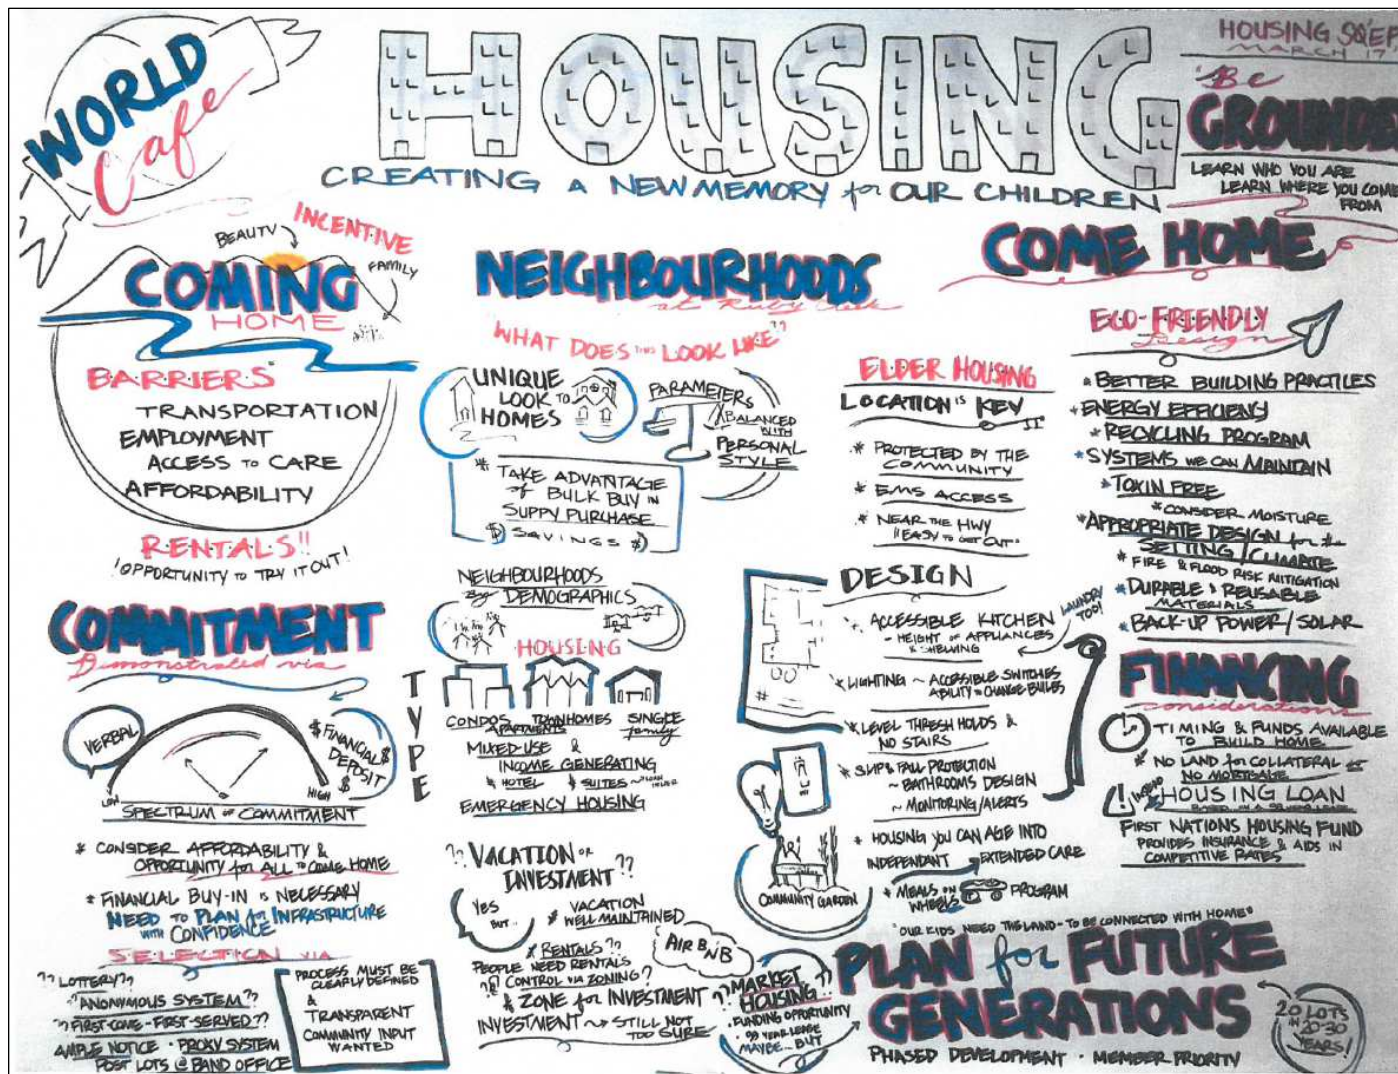 WORLD
Cafe
HOUSING
CREATING A NEW MEMORY for OUR CHILDREN
HOUSING
MARCH 17
"Be
GROUNDED
LEARN WHO YOU ARE
LEARN WHERE YOU COME
FROM
COME HOME
BEAUTY
INCENTIVE
FAMILY
COMING
HOME
BARRIERS
TRANSPORTATION
EMPLOYMENT
ACCESS TO CARE
AFFORDABILITY
RENTALS!!
!OPPORTUNITY TO TRY IT OUT!
COMMITMENT
Demonstrated via
VERBAL
$ FINANCIAL $
DEPOSIT
$
LOW
HIGH
SPECTRUM OF COMMITMENT
* CONSIDER AFFORDABILITY &
OPPORTUNITY for ALL TO COME HOME
* FINANCIAL BUY-IN IS NECESSARY
NEED TO PLAN for INFRASTRUCTURE
WITH CONFIDENCE
SELECTION VIA
?? LOTTERY??
"ANONYMOUS SYSTEM??
?? FIRST-COME-FIRST-SERVED??
AMPLE NOTICE · PROXY SYSTEM
POST LOTS @ BAND OFFICE
PROCESS MUST BE
CLEARLY DEFINED
&
TRANSPARENT
COMMUNITY INPUT
WANTED
NEIGHBOURHOODS
at Ruby
WHAT DOES THIS LOOK LIKE??
UNIQUE
LOOK TO
HOMES
PARAMETERS
BALANCED
WITH
PERSONAL
STYLE
* TAKE ADVANTAGE
of BULK BUY IN
SUPPY PURCHASE
$ SAVINGS $
NEIGHBOURHOODS
By DEMOGRAPHICS
HOUSING
TYPE
CONDOS
APARTMENTS
TOWNHOMES
SINGLE
family
MIXED-USE &
INCOME GENERATING
* HOTEL * SUITES
EMERGENCY HOUSING
?? VACATION OR
INVESTMENT??
YES
BUT..
* VACATION
WELL MAINTAINED
* RENTALS??
AIR B'N'B
PEOPLE NEED RENTALS
CONTROL VIA ZONING?
* ZONE for INVESTMENT
INVESTMENT ~> STILL NOT
TOO SURE
ELDER HOUSING
LOCATION IS KEY
* PROTECTED BY THE
COMMUNITY
* EMS ACCESS
* NEAR THE HWY
"EASY TO GET OUT"
DESIGN
* ACCESSIBLE KITCHEN
- HEIGHT OF APPLIANCES
& SHELVING
LAUNDRY
TOO!
* LIGHTING ~ ACCESSIBLE SWITCHES
ABILITY TO CHANGE BULBS
* LEVEL THRESH HOLDS &
NO STAIRS
* SLIP & FALL PROTECTION
~ BATHROOMS DESIGN
~ MONITORING/ALERTS
* HOUSING YOU CAN AGE INTO
INDEPENDANT
EXTENDED CARE
* MEALS ON
WHEELS
PROGRAM
COMMUNITY GARDEN
ECO-FRIENDLY
Design
* BETTER BUILDING PRACTICES
* ENERGY EFFICIENCY
* RECYCLING PROGRAM
* SYSTEMS WE CAN MAINTAIN
* TOXIN FREE
* CONSIDER MOISTURE
* APPROPRIATE DESIGN for the
SETTING/CLIMATE
* FIRE & FLOOD RISK MITIGATION
* DURABLE & REUSABLE
MATERIALS
* BACK-UP POWER/SOLAR
FINANCING
considerations
TIMING & FUNDS AVAILABLE
TO BUILD HOME
* NO LAND for COLLATERAL or
NO MORTGAGE
HOUSING LOAN
BASED ON A 99 YEAR LEASE
FIRST NATIONS HOUSING FUND
PROVIDES INSURANCE & AIDS IN
COMPETITIVE RATES
"OUR KIDS NEED THE LAND - TO BE CONNECTED WITH HOME"
?? MARKET
HOUSING??
· FUNDING OPPORTUNITY
· 99 YEAR LEASE
MAYBE... BUT
PLAN for FUTURE
GENERATIONS
PHASED DEVELOPMENT · MEMBER PRIORITY
20 LOTS
IN
20-30
YEARS!